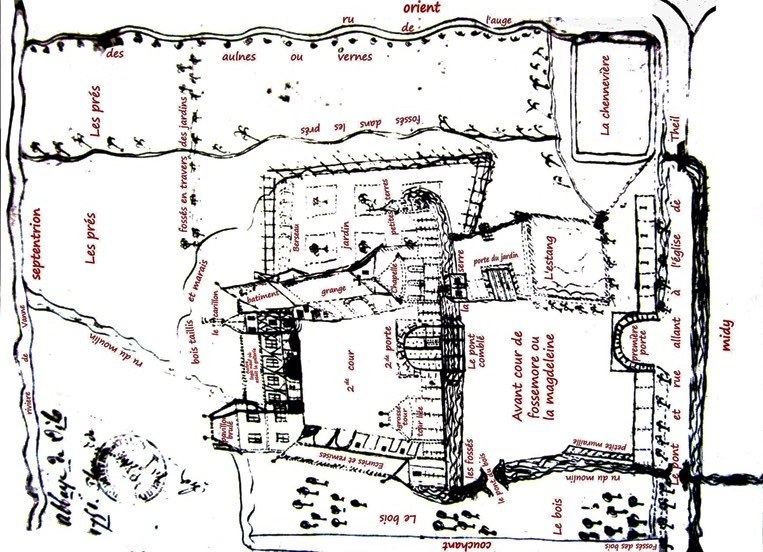 orient
ru de l'auge
des aulnes ou vernes
Les prés
fossés en travers des jardins
fossés dans les prés
La chennevière
septentrion
Les prés
Berseau
jardin
petites terres
bois taillis et marais
le carillon
batiment
grange
Chapelle
la serre
porte du jardin
L'estang
rivière de Vanne
ru du moulin
2de cour
2de porte
Le pont comblé
Avant cour de
fossemore ou
la magdeleine
première
porte
Le pont et rue allant à l'église de Theil
midy
pavillon
brulé
grosse
tour
tour
Ecuries et remises
les fossés
le pont du bois
petite muraille
ru du moulin
Le bois
Le bois
Fossés des bois
couchant
abbaye de